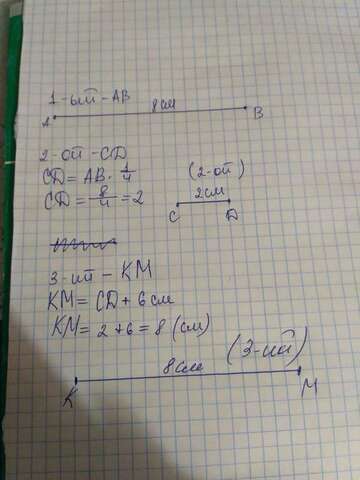 1-ый - AB
8 см
A
B
2-ой - CD
CD = AB · 1/4
(2-ой)
CD = 8/4 = 2
2 см
C
D
3-ий - KM
KM = CD + 6 см
KM = 2 + 6 = 8 (см)
(3-ий)
8 см
K
M